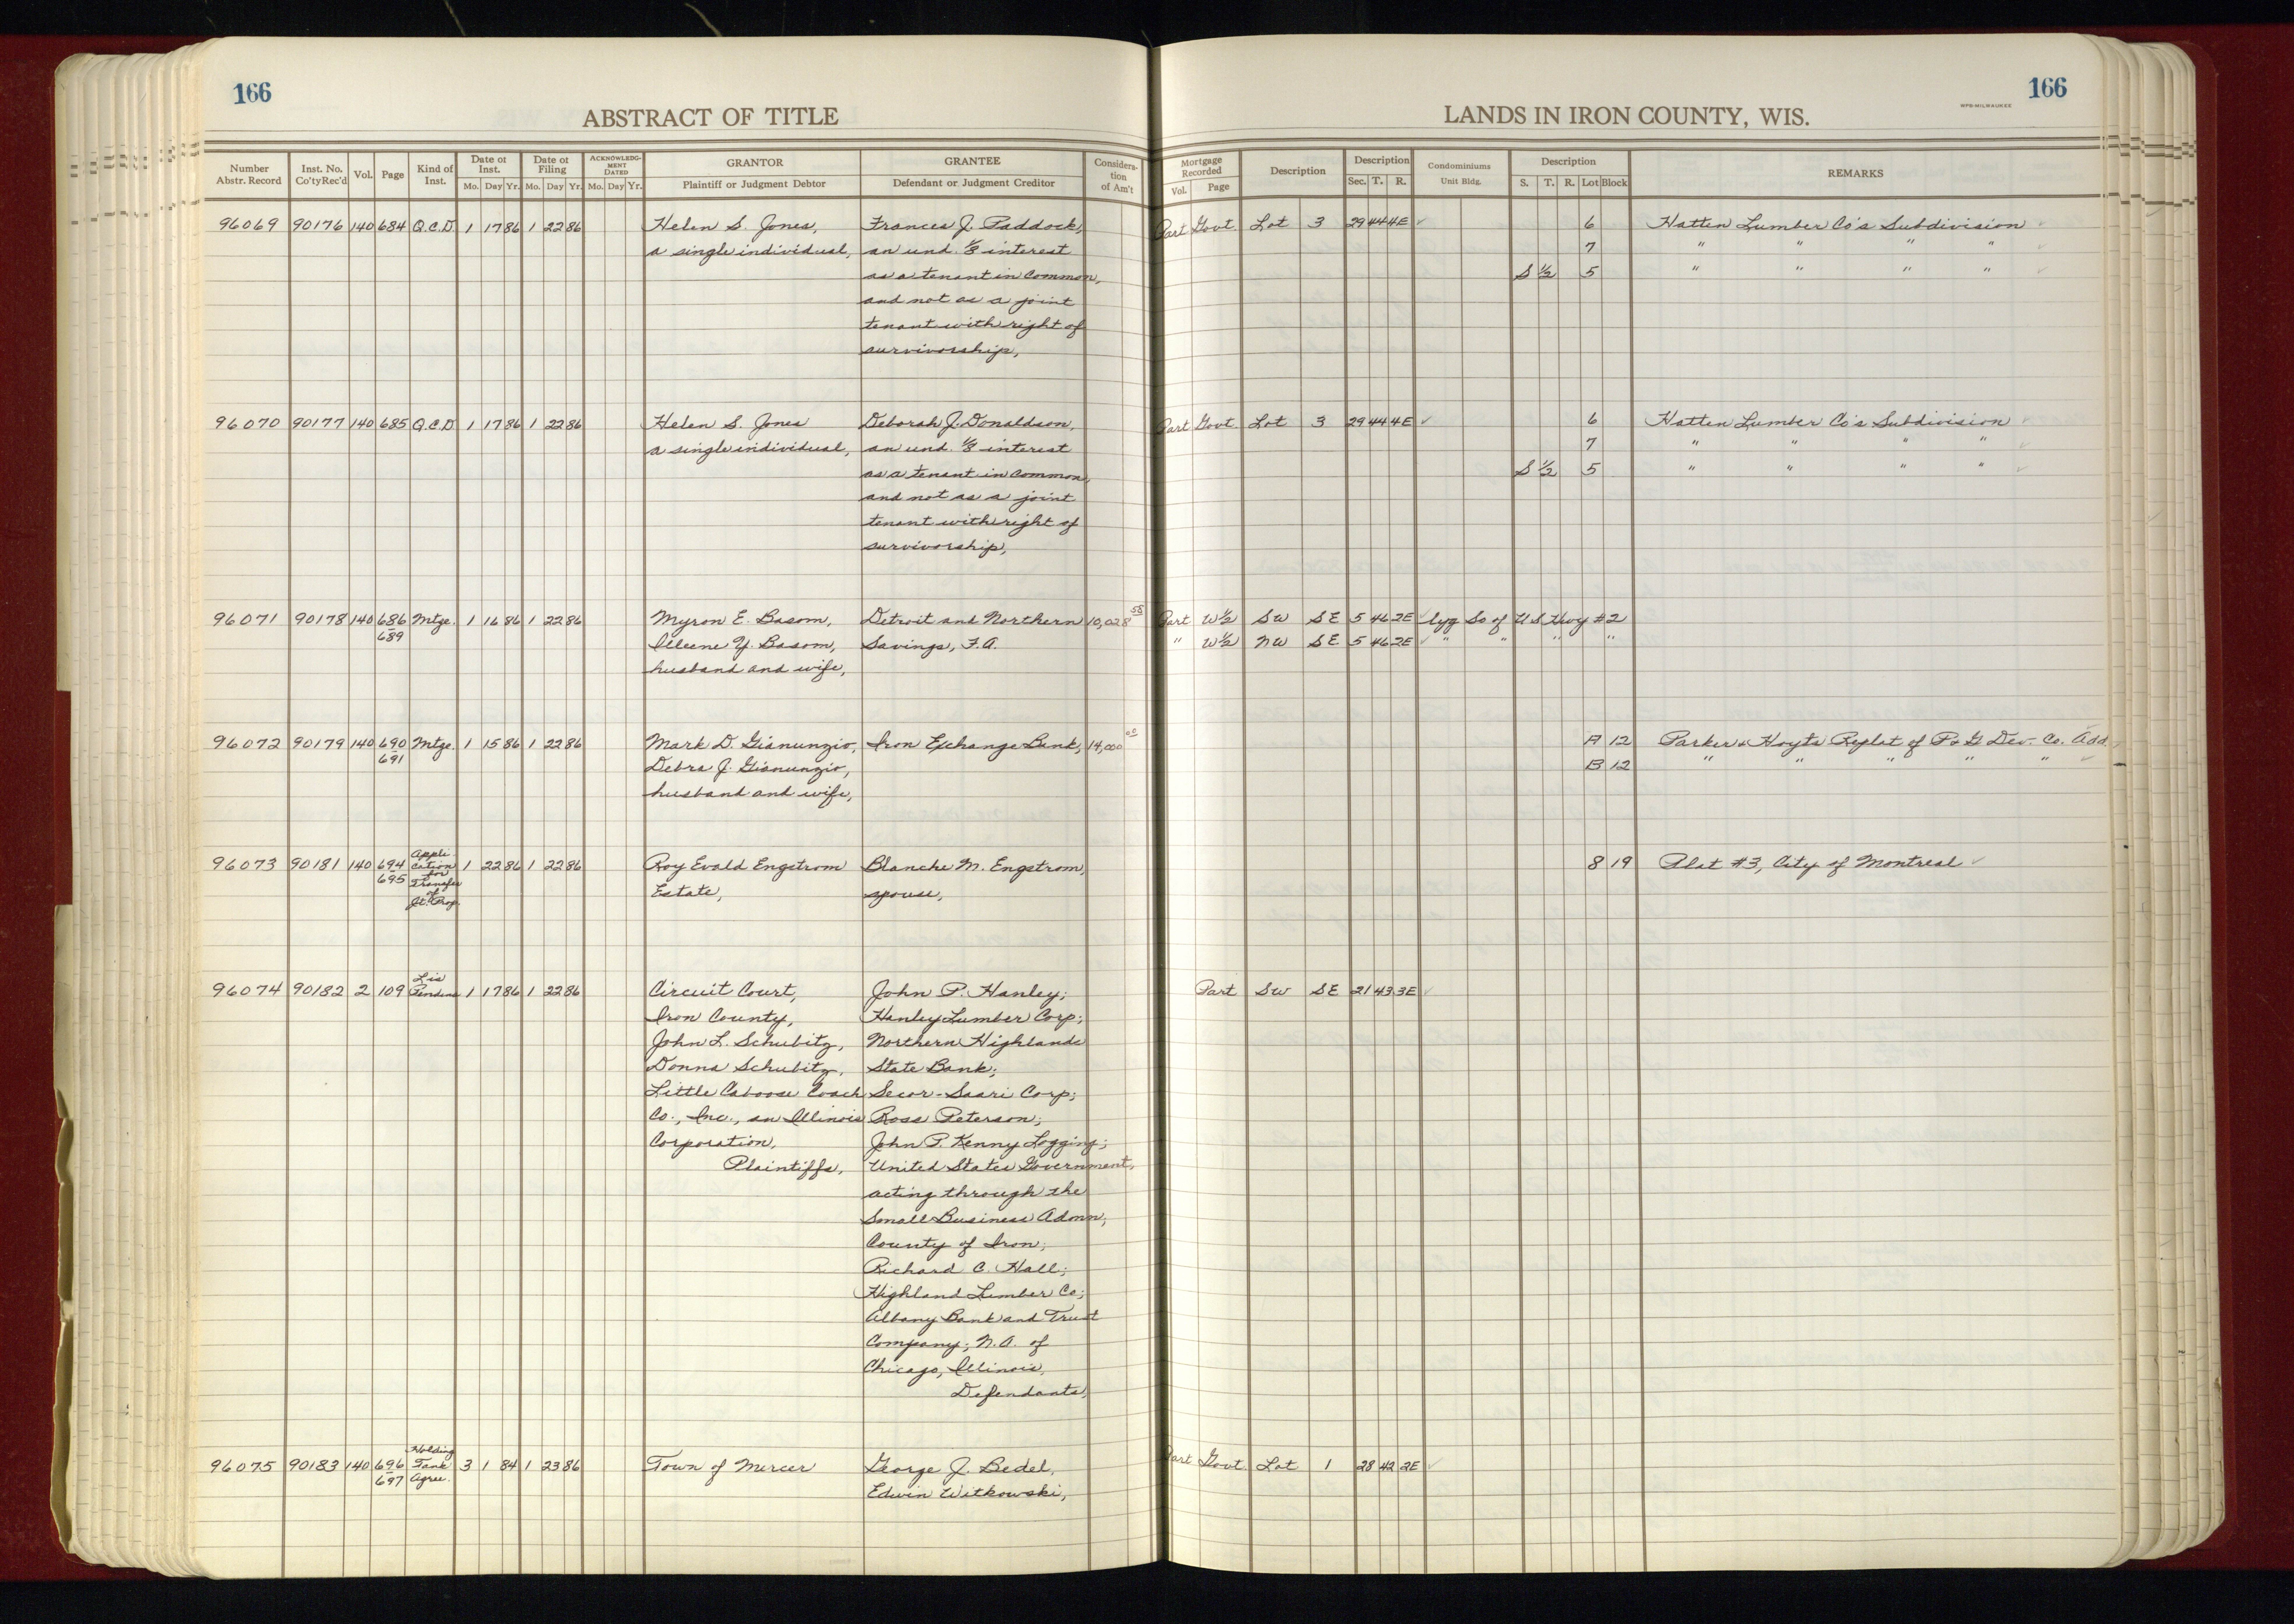 166
ABSTRACT OF TITLE
LANDS IN IRON COUNTY, WIS.
WPB-MILWAUKEE
166
Number Abstr. Record | Inst. No. Co'ty Rec'd | Vol. | Page | Kind of Inst. | Date of Inst. Mo. Day Yr. | Date of Filing Mo. Day Yr. | ACKNOWLEDGMENT DATED Mo. Day Yr. | GRANTOR Plaintiff or Judgment Debtor | GRANTEE Defendant or Judgment Creditor | Considera-tion of Am't | Mortgage Recorded Vol. Page | Description | Description Sec. T. R. | Condominiums Unit Bldg. | Description S. T. R. Lot Block | REMARKS
96069 90176 140 684 Q.C.D. 1 17 86 1 22 86 Helen S. Jones, Frances J. Paddock, Part Govt. Lot 3 29 44 4E 6 Hatten Lumber Co's Subdivision
a single individual, an und. 1/8 interest 7 " " " "
as a tenant in common, S 1/2 5 " " " "
and not as a joint
tenant with right of
survivorship,
96070 90177 140 685 Q.C.D 1 17 86 1 22 86 Helen S. Jones Deborah J. Donaldson, Part Govt. Lot 3 29 44 4E 6 Hatten Lumber Co's Subdivision
a single individual, an und. 1/8 interest 7 " " " "
as a tenant in common, S 1/2 5 " " " "
and not as a joint
tenant with right of
survivorship,
96071 90178 140 686 Mtge. 1 16 86 1 22 86 Myron E. Basom, Detroit and Northern 10,028 58 Part W 1/2 SW SE 5 46 2E lyg So of U S Hwy #2
689 Illeene Y. Basom, Savings, F.A. " W 1/2 NW SE 5 46 2E " " " "
husband and wife,
96072 90179 140 690 Mtge. 1 15 86 1 22 86 Mark D. Gianunzio, Iron Exchange Bank, 14,000 00 A 12 Parker & Hoyt's Replat of P & G Dev. Co. Add.
691 Debra J. Gianunzio, B 12 " " " " "
husband and wife,
96073 90181 140 694 Appli cation for Transfer of Jt. Prop. 1 22 86 1 22 86 Roy Evald Engstrom Blanche M. Engstrom, 8 19 Plat #3, City of Montreal
695 Estate, spouse,
96074 90182 2 109 Lis Pendens 1 17 86 1 22 86 Circuit Court, John P. Hanley; Part SW SE 21 43 3E
Iron County, Hanley Lumber Corp;
John L. Schubitz, Northern Highlands
Donna Schubitz, State Bank;
Little Caboose Coach Secor-Saari Corp;
Co., Inc., an Illinois Ross Peterson;
Corporation, John P. Kenny Logging;
Plaintiffs, United States Government,
acting through the
Small Business Admn;
County of Iron;
Richard C. Hall;
Highland Lumber Co;
Albany Bank and Trust
Company, N.A. of
Chicago, Illinois,
Defendants,
96075 90183 140 696 Holding Tank Agree. 3 1 84 1 23 86 Town of Mercer George J. Bedel, Part Govt. Lot 1 28 42 2E
697 Edwin Witkowski,